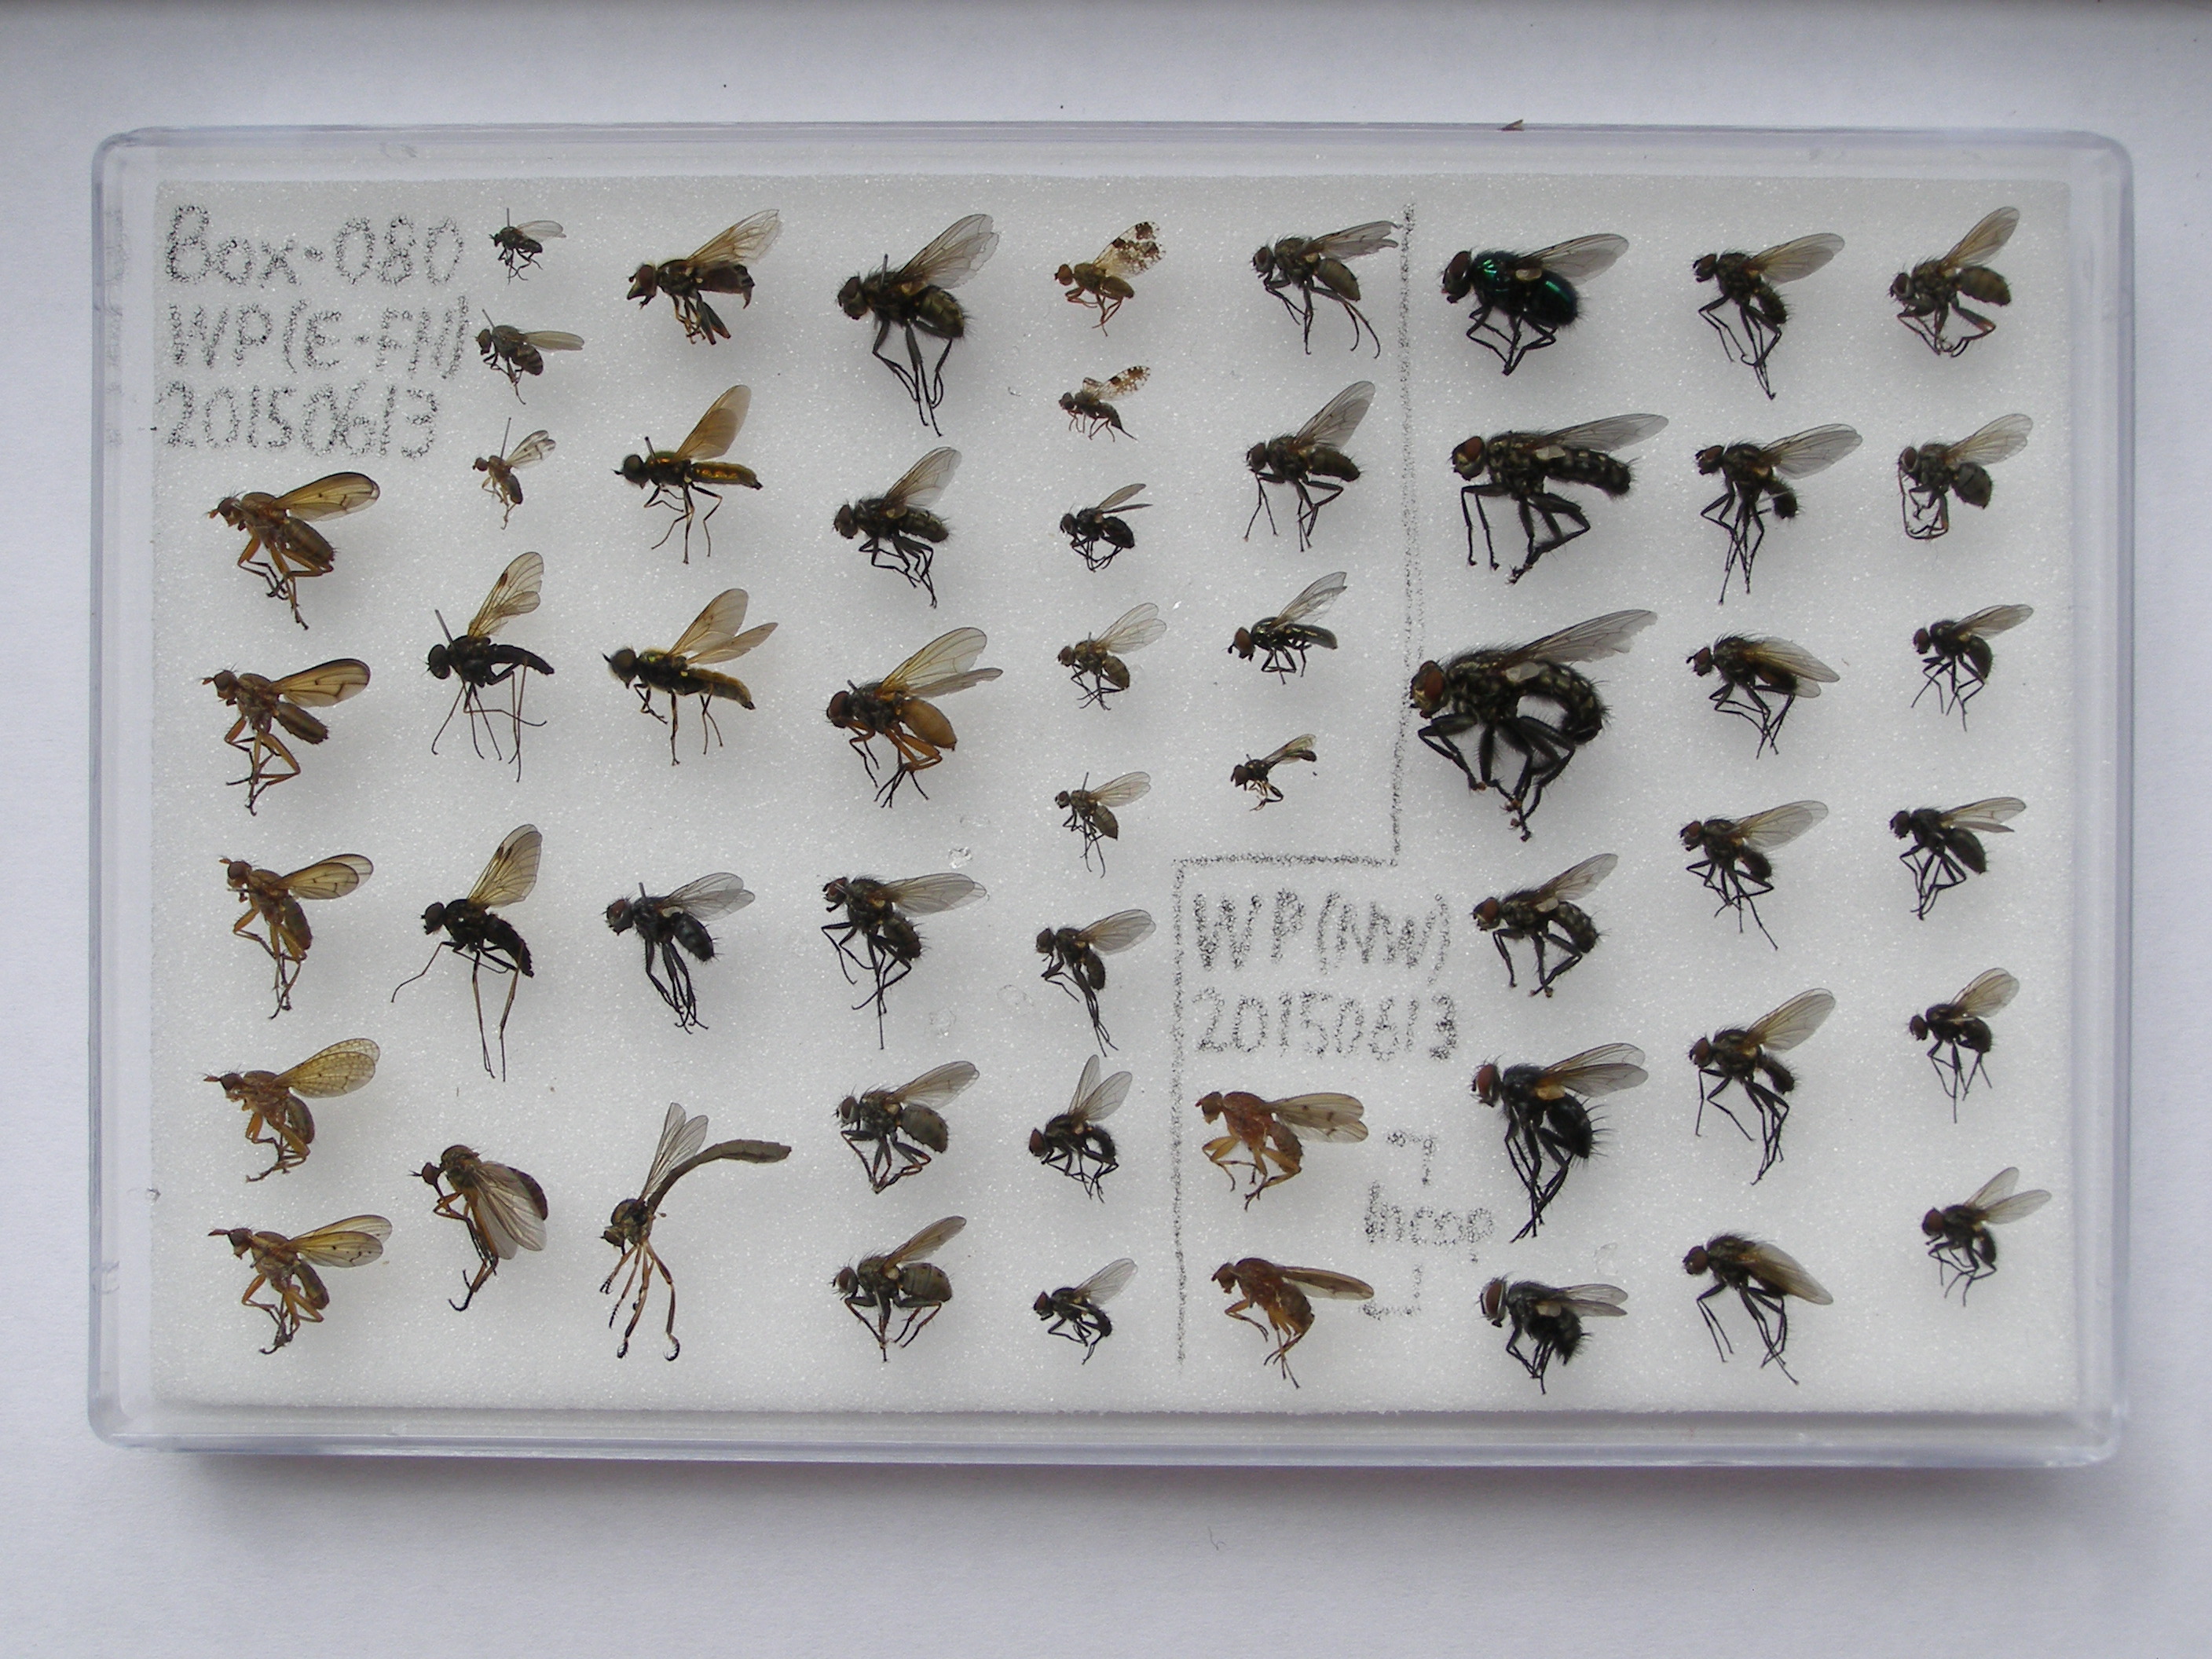 Box-080
WP(E-FN)
20150613
WP(NW)
20150613
Incop